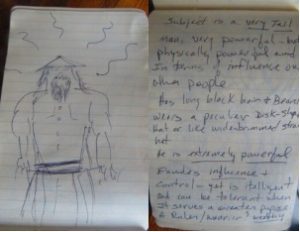 Subject is a very Tall
man, very powerful - both
physically powerful and
In terms of influence on
other people
Has long black hair + Beard
wears a peculiar Disk-Shape
Hat or like underbrimmed straw
hat
He is extremely powerful
influence +
Control - yet is
but can be tolerant when
It serves a greater purpose
Ruler/warrior